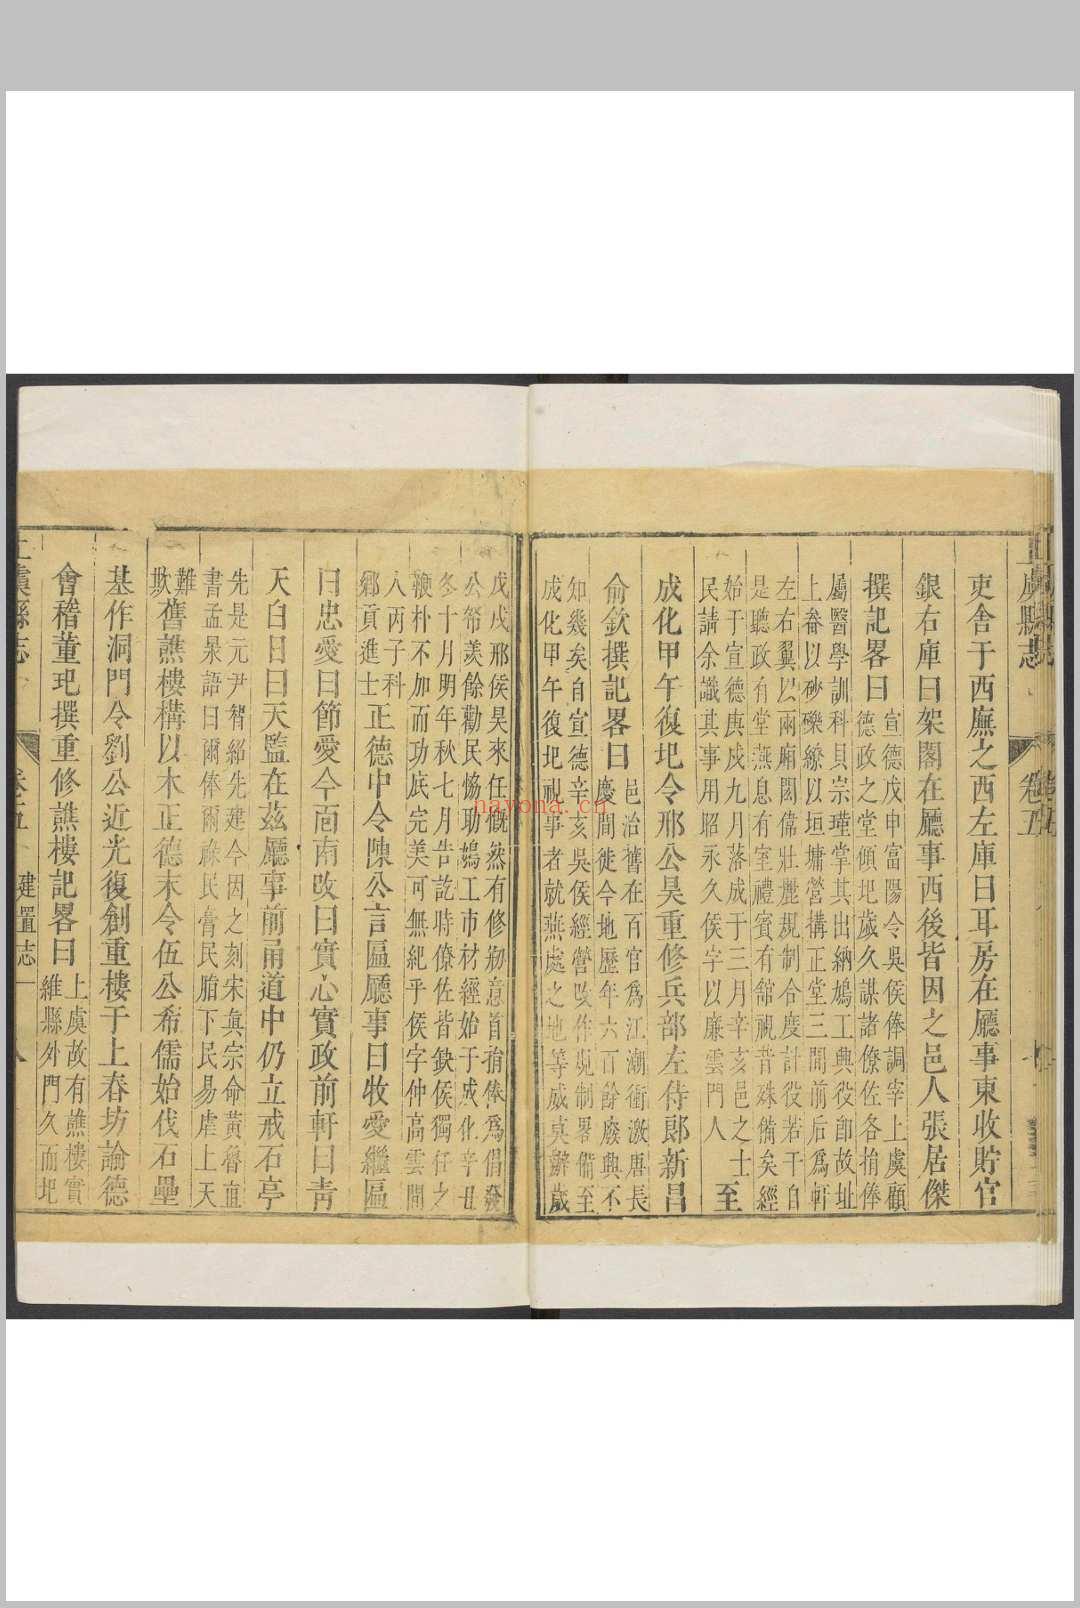 上虞縣志 卷五
吏舍于西廡之西左庫曰耳房在廳事東收貯官
銀右庫曰架閣在廳事西後皆因之邑人張居傑
撰記畧曰
宣德戊申富陽令吳侯俸調宰上虞顧
德政之堂傾圯歲久謀諸僚佐各捐俸
屬醫學訓科貝宗瑾掌其出納鳩工興役卽故址
上畚以砂礫繚以垣墉營構正堂三間前后爲軒
左右翼以兩廂閎偉壯麗規制合度計役若干自
是聽政有堂燕息有室禮賓有舘視昔殊備矣經
始于宣德庚戌九月落成于三月辛亥邑之士
民請余識其事用昭永久侯字以廉雲門人
至
成化甲午復圯令邢公昊重修兵部左侍郎新昌
俞欽撰記畧曰
邑治舊在百官爲江潮衝激唐長
慶間徙今地歷年六百餘廢興不
知幾矣自宣德辛亥吳侯經營改作規制畧備至
成化甲午復圯視事者就燕處之地等威莫辦歲
戊戌邢侯昊來任慨然有修剏意首捐俸爲倡發
公帑羨餘勸民恊助鳩工市材經始于成化辛丑
冬十月明年秋七月告訖時僚佐皆缺侯獨任之
鞭朴不加而功底完美可無紀乎侯字仲高雲間
人丙子科
鄉貢進士
正德中令陳公言區廳事曰牧愛繼區
曰忠愛曰節愛今面南改曰實心實政前軒曰青
天白日曰天監在茲廳事前甬道中仍立戒石亭
先是元尹智紹先建今因之刻宋眞宗命黃魯直
書孟杲語曰爾俸爾祿民膏民脂下民易虐上天
難
欺
舊譙樓構以木正德末令伍公希儒始伐石壘
基作洞門令劉公近光復創重樓于上春坊諭德
會稽董玘撰重修譙樓記畧曰
上虞故有譙樓實
維縣外門久而圯
上虞縣志 卷五 建置志 八
nayona.cn